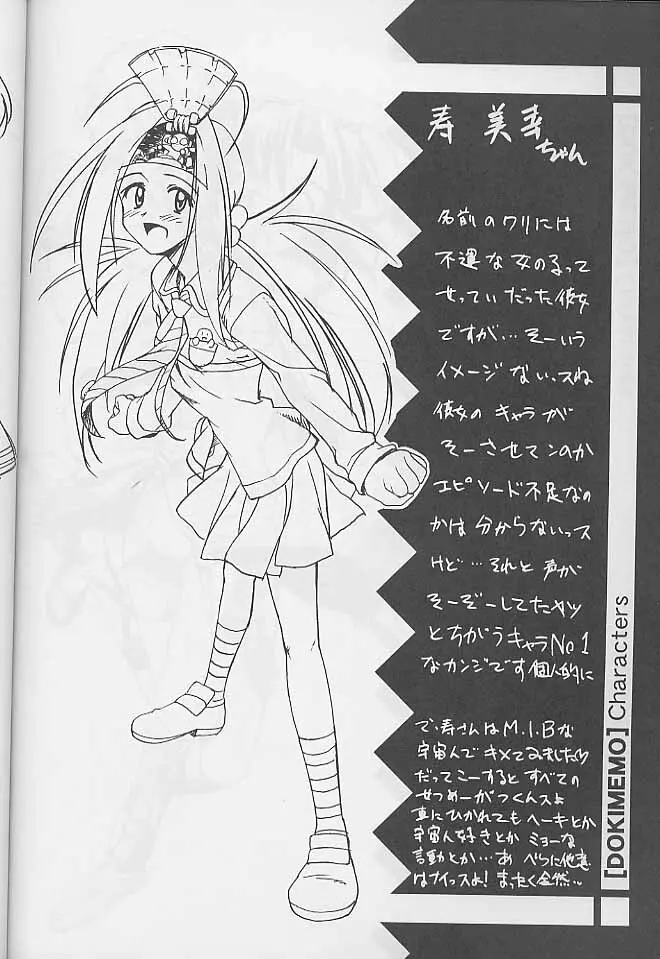 寿 美幸
ちゃん
名前のワリには
不運な女のるって
せってぃだった彼女
ですが…そーいう
イメージないっスね
彼女のキャラが
そーさせてンのか
エピソード不足なの
かは分からないっス
けど…それと声が
そーぞーしてたヤツ
とちがうキャラNo1
なカンジです個人的に
で、寿さんはM.I.Bな
宇宙人でキメてみましたッ
だってこーするとすべての
せつめーがつくんスよ
車にひかれてもヘーキとか
宇宙人好きとかミョーな
言動とか…あ べつに他意
はナイっスよ! まったく全然…
[DOKIMEMO] Characters